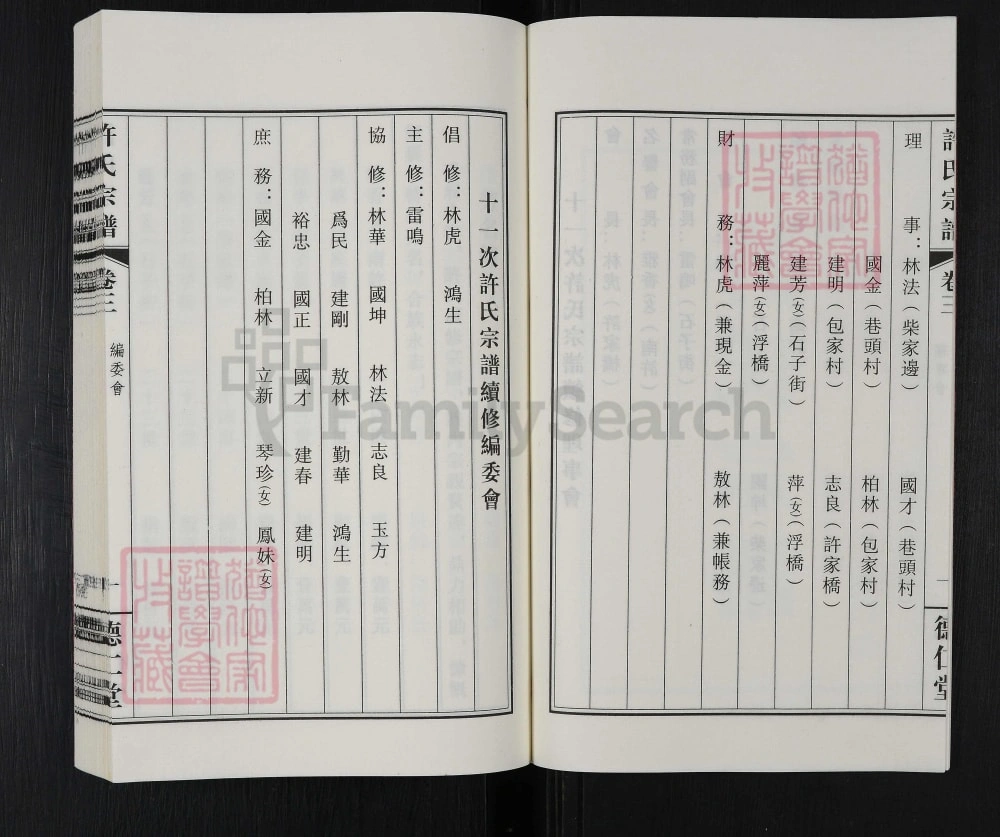 許氏宗譜 卷三 一 德仁堂
理事：林法（柴家邊） 國才（巷頭村）
國金（巷頭村） 柏林（包家村）
建明（包家村） 志良（許家橋）
建芳（女）（石子街） 萍（女）（浮橋）
麗萍（女）（浮橋）
財務：林虎（兼現金） 敖林（兼帳務）
十一次許氏宗譜續修編委會
倡修：林虎 鴻生
主修：雷鳴
協修：林華 國坤 林法 志良 玉方
爲民 建剛 敖林 勤華 鴻生
裕忠 國正 國才 建春 建明
庶務：國金 柏林 立新 琴珍（女） 鳳妹（女）
許氏宗譜 卷三 編委會 一 德仁堂
FamilySearch